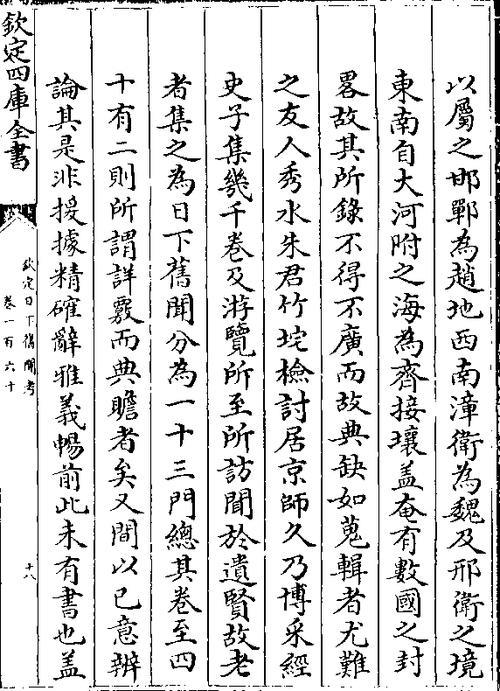 以屬之邯鄲為趙地西南漳衛為魏及邢衛之境
東南自大河附之海為齊接壤盖奄有數國之封
畧故其所錄不得不廣而故典缺如蒐輯者尤難
之友人秀水朱君竹垞檢討居京師久乃博采經
史子集幾千卷及游覽所至所訪聞於遺賢故老
者集之為日下舊聞分為一十三門總其卷至四
十有二則所謂詳覈而典贍者矣又間以已意辨
論其是非援據精確辭雅義暢前此未有書也盖
欽定四庫全書
欽定日下舊聞考
卷一百六十
十八